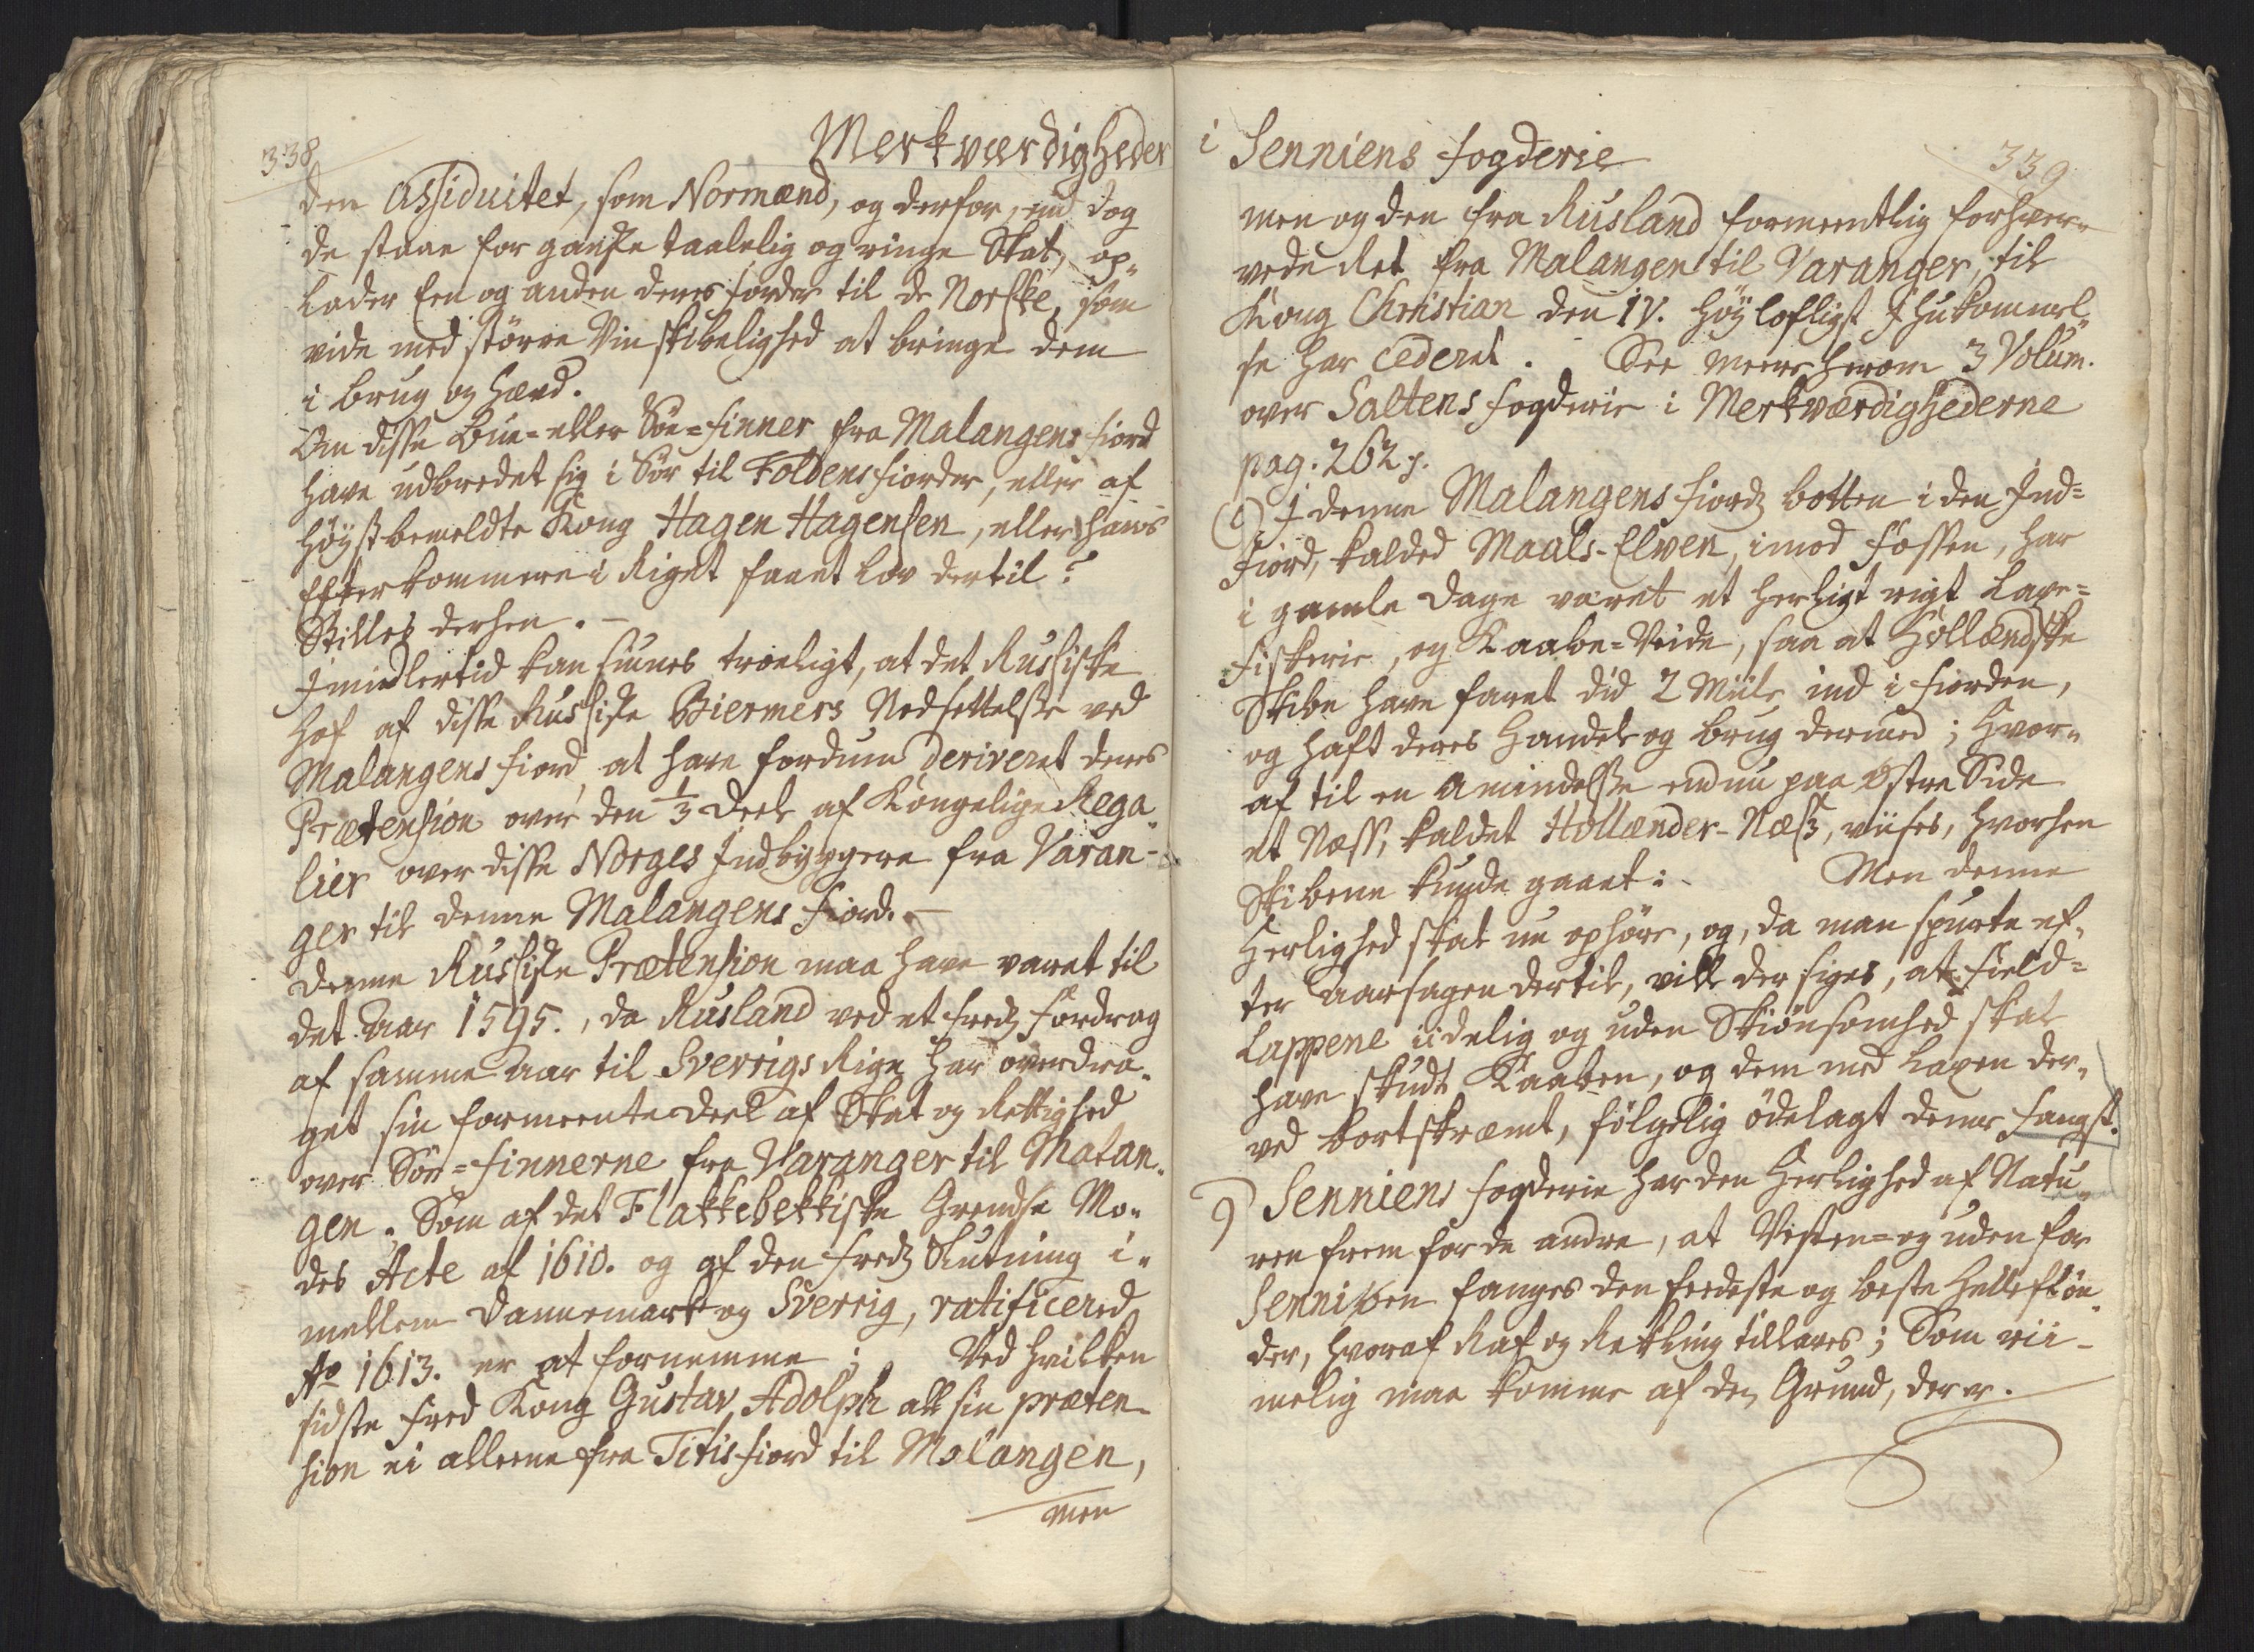 338
Merkværdigheder
den Assiduitet, som Normænd, og derfor, end dog
de staae for ganske taalelig og ringe Skat, op„
lader Een og anden deres Jorder til de Norske, som
vide med större Vinskibelighed at bringe dem
i brug og Hævd.
Om disse Bue- eller Söe-Finner fra Malangens fiord
have udbredet sig i Sör til Foldens fiorder, eller af
Höystbemeldte Kong Hagen Hagensen, eller hans
Efterkommere i Riget faaet Lov dertil?
Stilles derhen. —
Imidlertid kan siunes troeligt, at det Russiske
Hof af disse Russiske Biermers Nedsettelse ved
Malangens fiord, at have fordum deriveret deres
Prætension over den 1/3 Deel af Kongelige Rega„
lier over disse Norges Indbyggere fra Varan-
ger til denne Malangens fiord. —
Denne Russiske Prætension maa have varet til
det Aar 1595., da Rusland ved et Freds Fordrag
af samme Aar til Sverrigs Rige har overdra„
get sin formeente Deel af Skat og Rettighed
over Söe-Finnerne fra Varanger til Malan„
gen; Som af det Flakkebekkiske Grendse Mo„
des Acte af 1610. og af den Freds Slutning i„
mellem Dannemark og Sverrig, ratificered
Ao 1613. er at fornemme; Ved hvilken
sidste Fred Kong Gustav Adolph all sin præten-
sion ei alleene fra Titisfiord til Malangen,
men
i Senniens fogderie
339
men og den fra Rusland formeentlig forhver„
vede Ret fra Malangen til Varanger, til
Kong Christian den IV. Höylofligst Ihukommel„
se har cederet. See meere herom 3 Volum.
over Saltens fogderie i Merkværdighederne
pag. 262 f.
I denne Malangens fiords botten i den Ind-
Fiord, kalded Maals-Elven, imod Fossen, har
i gamle Dage været et herligt rigt Laxe-
Fiskerie, og Kaabe-Veide, saa at Hollændske
Skibe have faret did 2 Miile ind i Fiorden,
og haft deres Handel og brug dermed; Hvor„
af til en Amindelse endnu paa Östre Side
et Næss, kaldet Hollænder-Næss, viises, hvorhen
Skibene kunde gaaet: Men denne
Herlighed skal nu ophöre, og, da man spurte ef„
ter Aarsagen dertil, vill der siges, at Field-
Lappene iidelig og uden Skiönsomhed skal
have skudt Kaaben, og dem med Laxen der„
ved bortskræmt, fölgelig ödelagt denne Fangst.
9) Senniens fogderie har den Herlighed af Natu„
ren frem for de andre, at Vesten- og uden for
Sennien fanges den feedeste og beste Helleflön„
der, hvoraf Raf og Rekling tillaves; Som rii-
melig maa komme af den Grund, der er. —